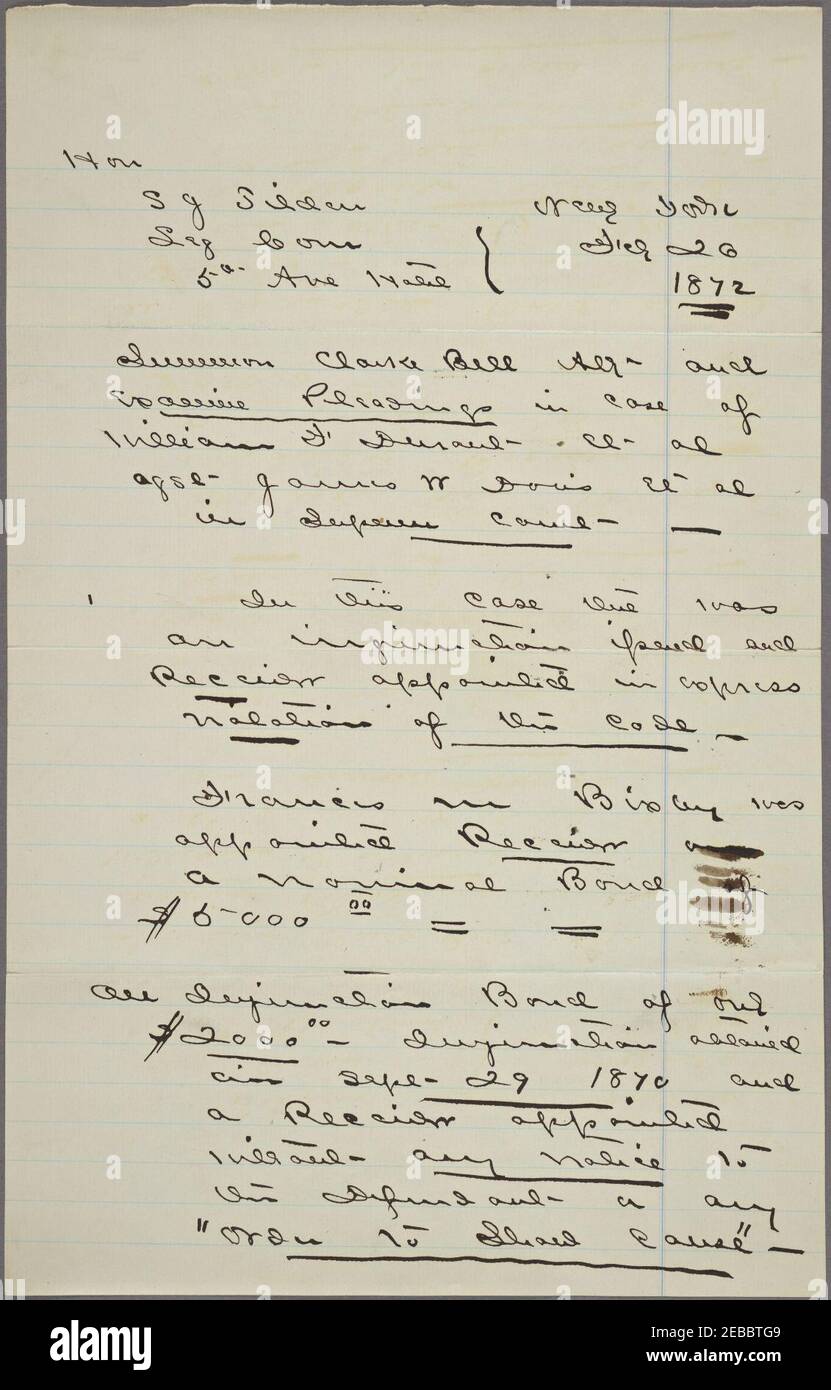 Hon
S J Tilden New York
Leg Com Feb 26
5th Ave Hotel 1872
Summon Clarke Bell Atty and
examine Pleadings in case of
William F Durant et al
agst James W Davis et al
in Supreme Court —
In this case there was
an injunction issued and
Receiver appointed in express
violation of the code —
Francis M Bixby was
appointed Receiver on
a nominal Bond of
$5000 00
An Injunction Bond of only
$2000 00 — Injunction obtained
on Sept 29 1870 and
a Receiver appointed
without any notice to
the Defendant or any
"Order to Show Cause" —
alamy
Image ID: 2EBBTG9
www.alamy.com